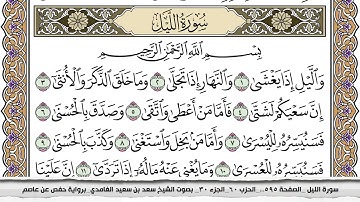 سُورَةُ اللَّيْلِ
بِسْمِ اللَّهِ الرَّحْمَٰنِ الرَّحِيمِ
وَالَّيْلِ إِذَا يَغْشَىٰ ١ وَالنَّهَارِ إِذَا تَجَلَّىٰ ٢ وَمَا خَلَقَ الذَّكَرَ وَالْأُنثَىٰ ٣
إِنَّ سَعْيَكُمْ لَشَتَّىٰ ٤ فَأَمَّا مَنْ أَعْطَىٰ وَاتَّقَىٰ ٥ وَصَدَّقَ بِالْحُسْنَىٰ ٦
فَسَنُيَسِّرُهُ لِلْيُسْرَىٰ ٧ وَأَمَّا مَنۢ بَخِلَ وَاسْتَغْنَىٰ ٨ وَكَذَّبَ بِالْحُسْنَىٰ ٩
فَسَنُيَسِّرُهُ لِلْعُسْرَىٰ ١٠ وَمَا يُغْنِي عَنْهُ مَالُهُ إِذَا تَرَدَّىٰ ١١ إِنَّ عَلَيْنَا
سورة الليل .. الصفحة ٥٩٥ .. الحزب ٦٠ .. الجزء ٣٠ .. بصوت الشيخ سعد بن سعيد الغامدي .. برواية حفص عن عاصم